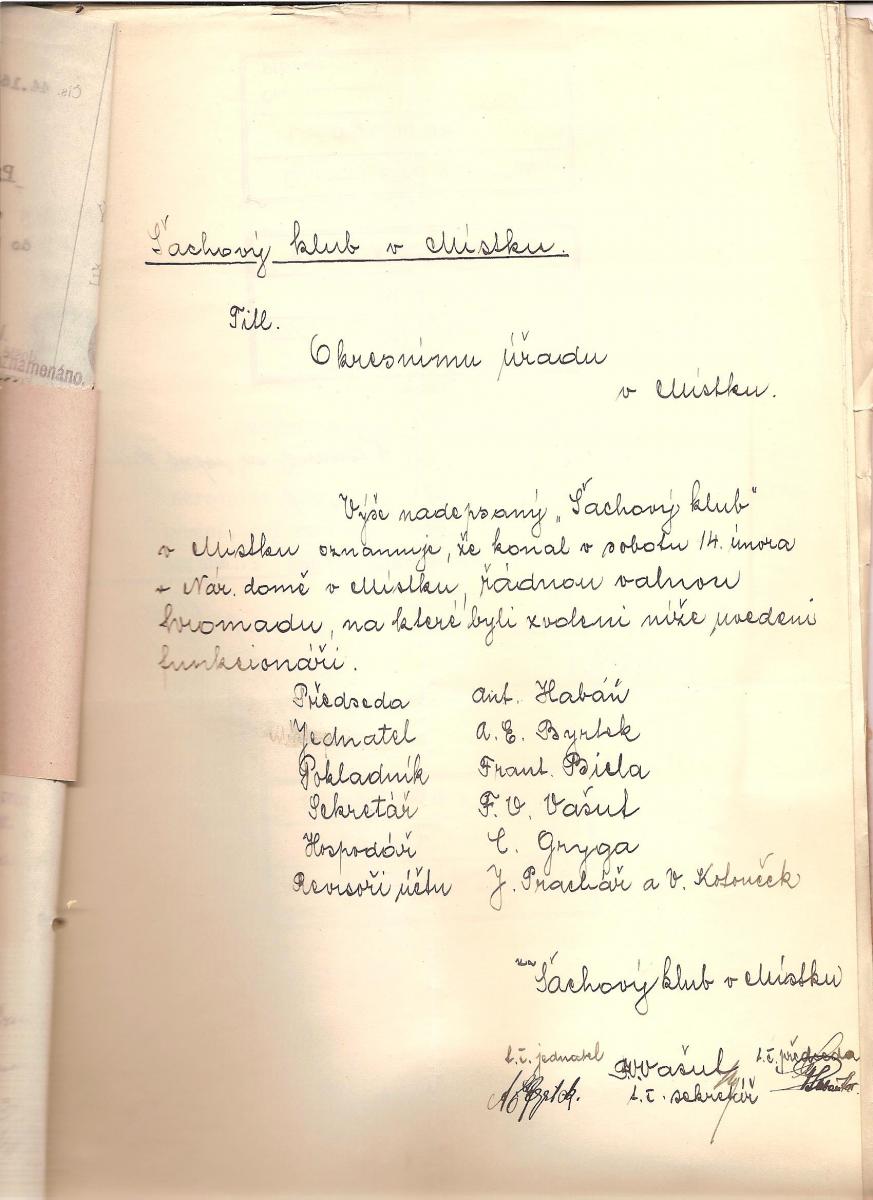 Šachový klub v Místku.
Titl.
Okresnímu úřadu
v Místku.
Výše nadepsaný „Šachový klub"
v Místku oznamuje, že konal v sobotu 14. února
v Nár. domě v Místku, řádnou valnou
hromadu, na které byli zvoleni níže uvedeni
funkcionáři.
Předseda Ant. Habáň
Jednatel A. E. Byrtek
Pokladník Frant. Biela
Sekretář F. V. Vašut
Hospodář C. Gryga
Revisoři účtu J. Prachář a V. Kotouček
za Šachový klub v Místku
t. č. jednatel t. č. předseda
Vašut
t. č. sekretář
Čís.
do
znamenáno.